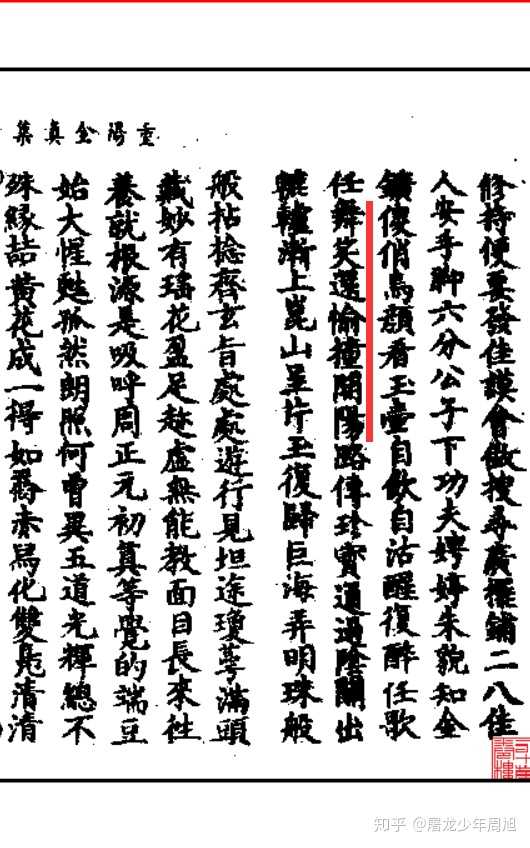 重陽全真集
修持便要發佳謨會做搜尋廣鋪二八佳
人安手脚六分公子下功夫娉婷朱貌知金
鑛傻俏烏頹看玉壺自飲自沽醒復醉任歌
任舞笑還愉撞開陽路傳珍寳通過陰關出
轆轤漸上崑山呈片玉復歸巨海弄明珠般
般拈捻齊玄旨處處遊行見坦途瓊蕚滿頭
藏妙有瑤花盈足趂虛無能教面目長來往
養就根源是吸呼周正元初真等覺的端亘
始大惺甦孤然朗照何曾異五道光輝總不
殊緣喆黃花成一得如爲化雙鳬清清
知乎 @屠龙少年周旭